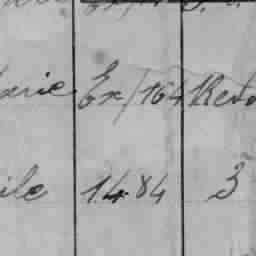 arie Ex/164 Revo
ile 1484 3